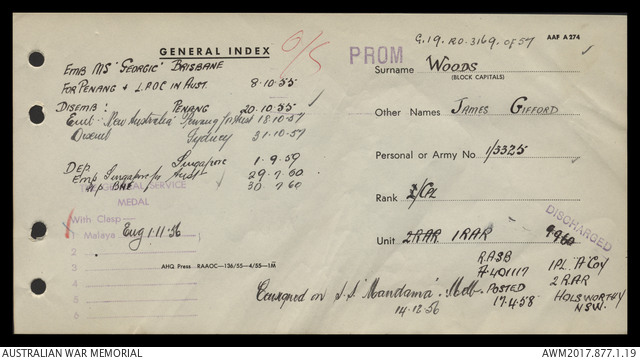 G.19. R.O. 3169. OF 57
AAF A 274
GENERAL INDEX
O/S
PROM
EMB MS 'GEORGIC' BRISBANE
FOR PENANG & L.P.O.C IN AUST. 8.10.55
DISEMB: PENANG 20.10.55
Emb: 'New Australia' Penang f/n Aust 18.10.57
Disemb Sydney 31.10.57
Singapore
DEP 1.9.59
Emp Singapore f/n Aust 29.7.60
BNE 30.7.60
GENERAL SERVICE
MEDAL
With Clasp—
1 Malaya Eng 1.11.56
2
3
4
AHQ Press RAAOC—136/55—4/55—1M
Consigned on S.S. 'Mandama' Melb.
14.12.56
Surname WOODS
(BLOCK CAPITALS)
Other Names JAMES GIFFORD
Personal or Army No 1/3325
Rank 2/Cpl
DISCHARGED
Unit 2RAR 1RAR 9.9.60
RASB
A401117
POSTED
17.4.58
1PL 'A' COY
2 RAR
HOLSWORTHY
NSW.
AUSTRALIAN WAR MEMORIAL
AWM2017.877.1.19